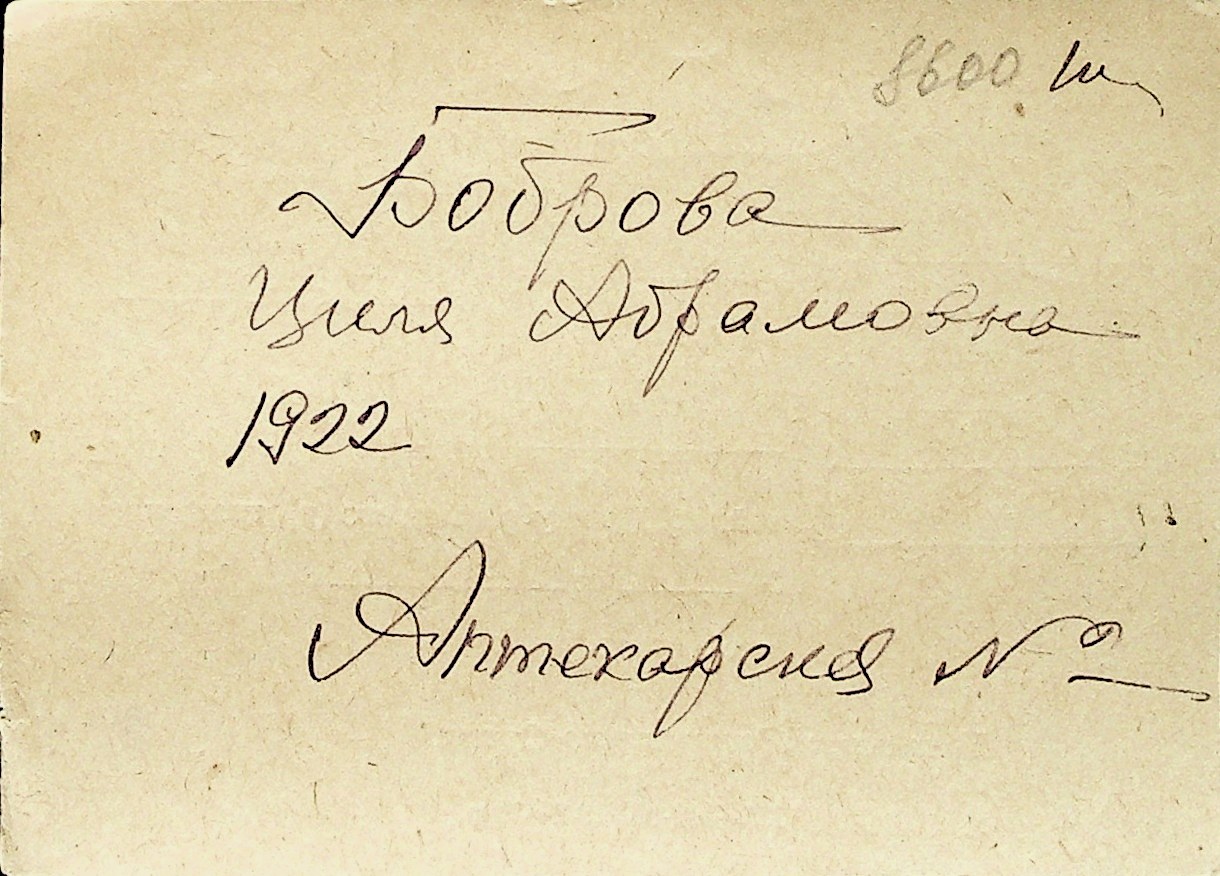 8600
Боброва
Циля Абрамовна
1922
Аптекарская №